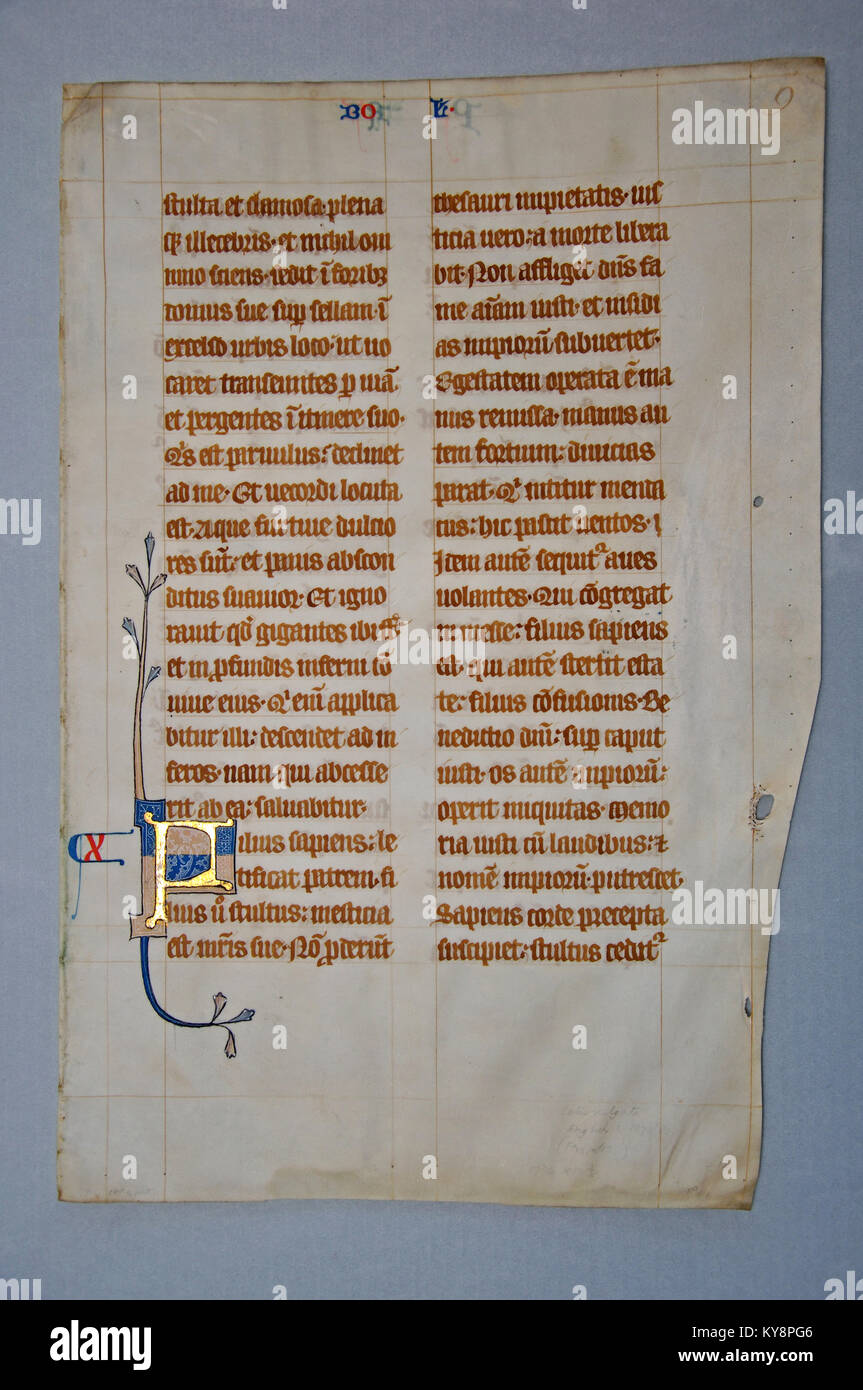 BO LE·
stulta et clamosa· plena
q̨ illecebris· et nichil om
nino sciens· sedit ī foribꝫ
domus sue sup̱ sellam ī
excelso urbis loco· ut uo
caret transeuntes p̱ uiā
et pergentes ī itinere suo·
Qͥs est paruulus: declinet
ad me· Et uecordi locuta
est· Aque furtiue dulcio
res sūt: et panis abscon
ditus suauior· Et igno
rauit qd̓ gigantes ibi sīt
et in p̱fundis inferni cō
uiue eius· Qͥ enī applica
bitur illi: descendet ad in
feros· nam qui abcesse
rit ab ea: saluabitur·
X
Filius sapiens: le
tificat patrem· fi
lius ů stultus: mesticia
est mr̄is sue· Nō p̱derūt
thesauri impietatis· ius
ticia uero: a morte libera
bit· Non affliget dn̄s fa
me aīam iusti· et insidi
as impiorū subuertet·
Egestatem operata ē ma
nus remissa· manus au
tem fortium: diuicias
parat· Qͥ nititur menda
ciis: hic pascit uentos· i
Idem autē sequit᷑ aues
uolantes· Qui cōgregat
in messe: filius sapiens
est· qui autē stertit esta
te: filius cōfusionis· Be
nedictio dn̄i: sup̱ caput
iusti· os autē impiorū:
operit iniquitas· Memo
ria iusti cū laudibus: ⁊
nomē impiorū putrescet·
Sapiens corde precepta
suscipiet: stultus cedit᷑
alamy
Image ID: KY8PG6
www.alamy.com